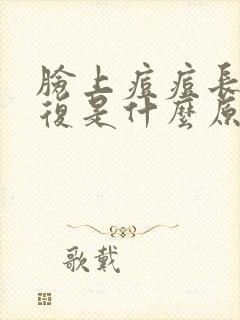 臉上痘痘長
復是什麼原
歌戴